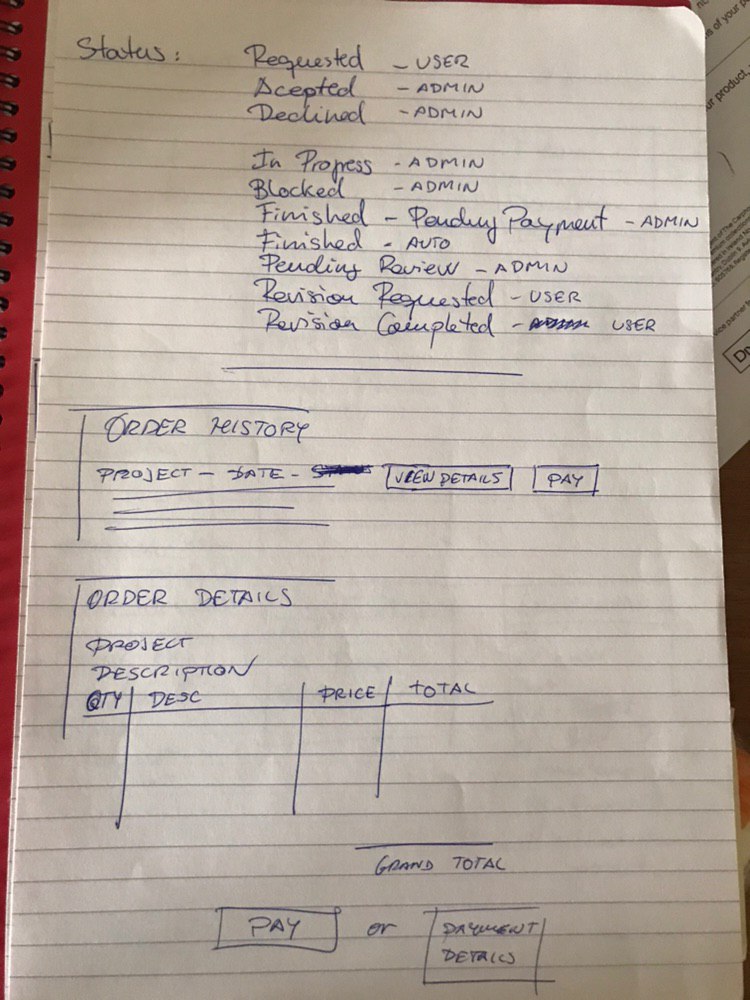 Status:
Requested - USER
Acepted - ADMIN
Declined - ADMIN
In Progress - ADMIN
Blocked - ADMIN
Finished - Pending Payment - ADMIN
Finished - AUTO
Pending Review - ADMIN
Revision Requested - USER
Revision Completed - USER
ORDER HISTORY
PROJECT - DATE - VIEW DETAILS PAY
ORDER DETAILS
PROJECT
DESCRIPTION
QTY DESC PRICE TOTAL
GRAND TOTAL
PAY or PAYMENT
DETAILS
of your p
ur product.